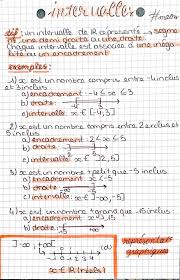 intervalles
#maths
déf: un intervalle de R représente → segme
nt, une demi droite ou une droite.
Chaque intervalle est associée à une inéga
lité ou un encadrement
exemples:
1) x est un nombre compris entre -4 inclus
et 3 inclus
a) encadrement -4 ≤ x ≤ 3
b) droite
c) intervalle: x ∈ [-4,3]
2) x est un nombre compris entre 2 exclus et
5 inclus
a) encadrement: 2 < x ≤ 5
b) droite:
c) intervalle: x ∈ ]2,5]
3) x est un nombre + petit que -5 inclus
a) encadrement: x ≤ -5
b) droite:
c) intervalle: x ∈ ]-∞,-5]
4) x est un nombre + grand que
a) encadrement:
b) droite:
c) intervalle: x ∈
]-∞,+∞[
x ∈ R
représentations
graphiques